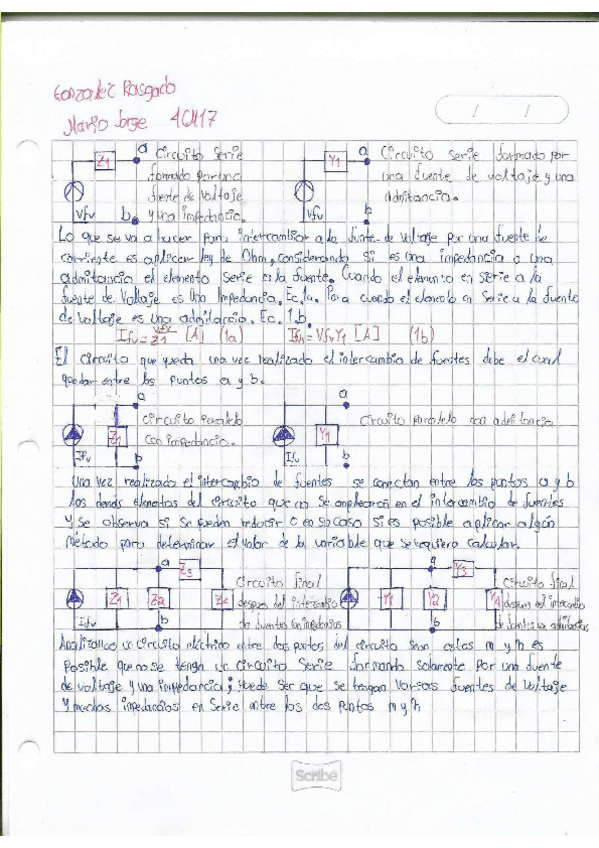 Gonzalez Rasgado
Mario Jorge 4CM17
/ /
a Circuito Serie
formado por una
fuente de voltaje
y una impedancia.
Z1
Vfv
b
a Circuito serie formado por
una fuente de voltaje y una
admitancia.
Y1
Vfv
b
Lo que se va a hacer para intercambiar a la fuente de voltaje por una fuente de
corriente es aplicar ley de Ohm, considerando si es una impedancia o una
admitancia el elemento serie es la fuente. Cuando el elemento en serie a la
fuente de Voltaje es una Impedancia. Ec. 1a. Para cuando el elemento en Serie a la fuente
de voltaje es una admitancia. Ec. 1b.
Ifv = Vfv/Z1 [A] (1a) Ifv = Vfv Y1 [A] (1b)
El circuito que queda una vez realizado el intercambio de fuentes debe el cual
quedar entre los puntos a y b.
a
Circuito Paralelo
con impedancia.
Ifv
Z1
b
a
Circuito paralelo con admitancia
Ifv
Y1
b
Una vez realizado el intercambio de fuentes se conectan entre los puntos a y b
los demás elementos del circuito que no se emplearon en el intercambio de fuentes
y se observa si se pueden reducir o en su caso si es posible aplicar algún
método para determinar el valor de la variable que se requiera calcular.
a
Z3
Ifv
Z1
Z2
b
Circuito final
despues del intercambio
de fuentes con impedancias
a
Y3
Ifv
Y1
Y2
Y4
b
Circuito final
despues del intercambio
de fuentes con admitancias
Analizamos un circuito eléctrico entre dos puntos del circuito sean estos m y n es
posible que no se tenga un circuito Serie formando solamente por una fuente
de voltaje y una impedancia; puede ser que se tengan varias fuentes de voltaje
y muchas impedancias en Serie entre los dos puntos m y n
Scribe